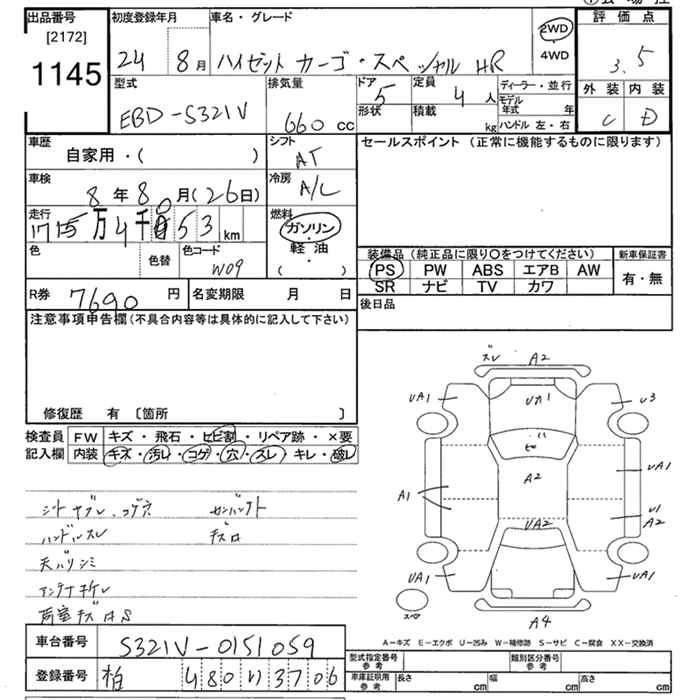 出品番号
[2172]
1145
初度登録年月
24 8月
車名・グレード
ハイゼット カーゴ・スペシャル HR
2WD
4WD
評価点
3.5
外装 内装
C D
型式
EBD-S321V
排気量
660 cc
ドア
5
形状
定員
4人
積載
kg
ディーラー・並行
モデル年式 年
ハンドル 左・右
車歴
自家用・( )
シフト
AT
セールスポイント (正常に機能するものに限ります)
車検
8年8月(26日)
冷房
A/C
走行
万4千 53 km
燃料
ガソリン
軽油
・
( )
色
色替
色コード
W09
装備品 (純正品に限り〇をつけてください)
新車保証書
PS PW ABS エアB AW
SR ナビ TV カワ
有・無
R券 7690円
名変期限 月 日
後日品
注意事項申告欄 (不具合内容等は具体的に記入して下さい)
修復歴 有 〔箇所 〕
検査員記入欄
FW キズ・飛石・ヒビ割・リペア跡・×要
内装 キズ・汚レ・コゲ・穴・スレ キレ・破レ
ハンドルスレ
天バリシミ
ズレ A2
UA1 UA1 U3
ヒビ
A2
UA1
A1
U1
A2
UA2
UA1 UA1
スペア
A4
A-キズ E-エクボ U-凹み W-補修跡 S-サビ C-腐食 XX-交換済
車台番号 S321V-0151059
登録番号 柏 480 3706
型式指定番号
参考
類別区分番号
参考
車庫証明用
参考
長さ cm
幅 cm
高さ cm